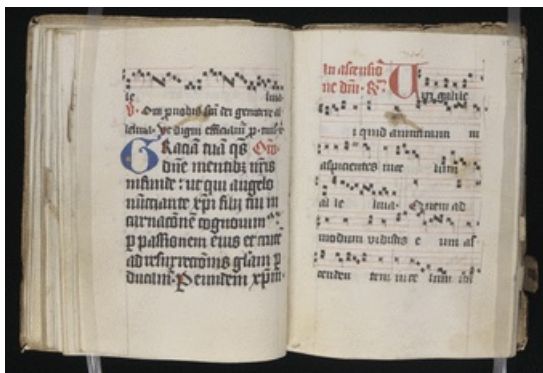 le luia
V. Ora p nobis sca dei genitrix al
leluia. Ut digni efficiam p miss
Graciā tuā q̄s Om̄
dn̄e mentibȝ nr̄is
infunde : ut qui angelo
nūciante xp̄i filij tui in
carnacōnē cognouim
p passionem eius et cruce
ad resurrectōnis gl̄am p
ducam. Peundem xp̄m.
In ascensiō
ne dn̄i. R. Uiri galile
i quid ammiram ni
aspicientes in ce lum
al le luia. Quem ad
modum vidistis e um as
cenden tem in ce lum in